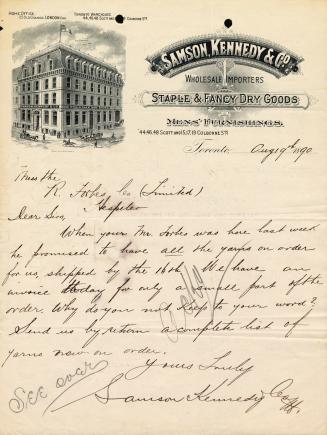 HOME OFFICE
TORONTO WAREHOUSE
44, 46, 48 SCOTT AND 15, 17, 19 COLBORNE ST
SAMSON, KENNEDY & Co.
WHOLESALE IMPORTERS
STAPLE & FANCY DRY GOODS
MENS' FURNISHINGS.
44, 46, 48 SCOTT AND 15, 17, 19 COLBORNE ST
Toronto, Aug 19th 1890
Mess the
R. Forbes Co (Limited)
Hespeler
Dear Sirs,
When your Mr. Forbes was here last week
he promised to have all the yarns on order
for us, shipped by the 16th. We have an
invoice today for only a small part of the
order. Why do you not keep to your word?
Send us by return a complete list of
yarns now on order.
Yours Truly
Samson Kennedy Co
See over